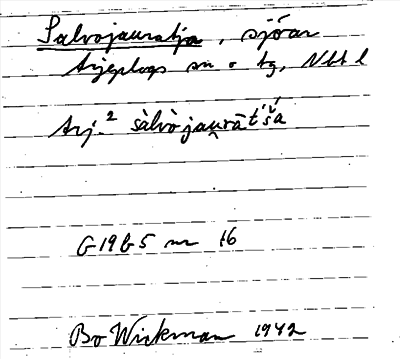 Salvojauratja, sjöar
Arjeplogs sn o tg, Nbt l
Arj.² sàlvò jau̯rāt́š́á
G 19 b 5 nr 16
Bo Wickman 1942